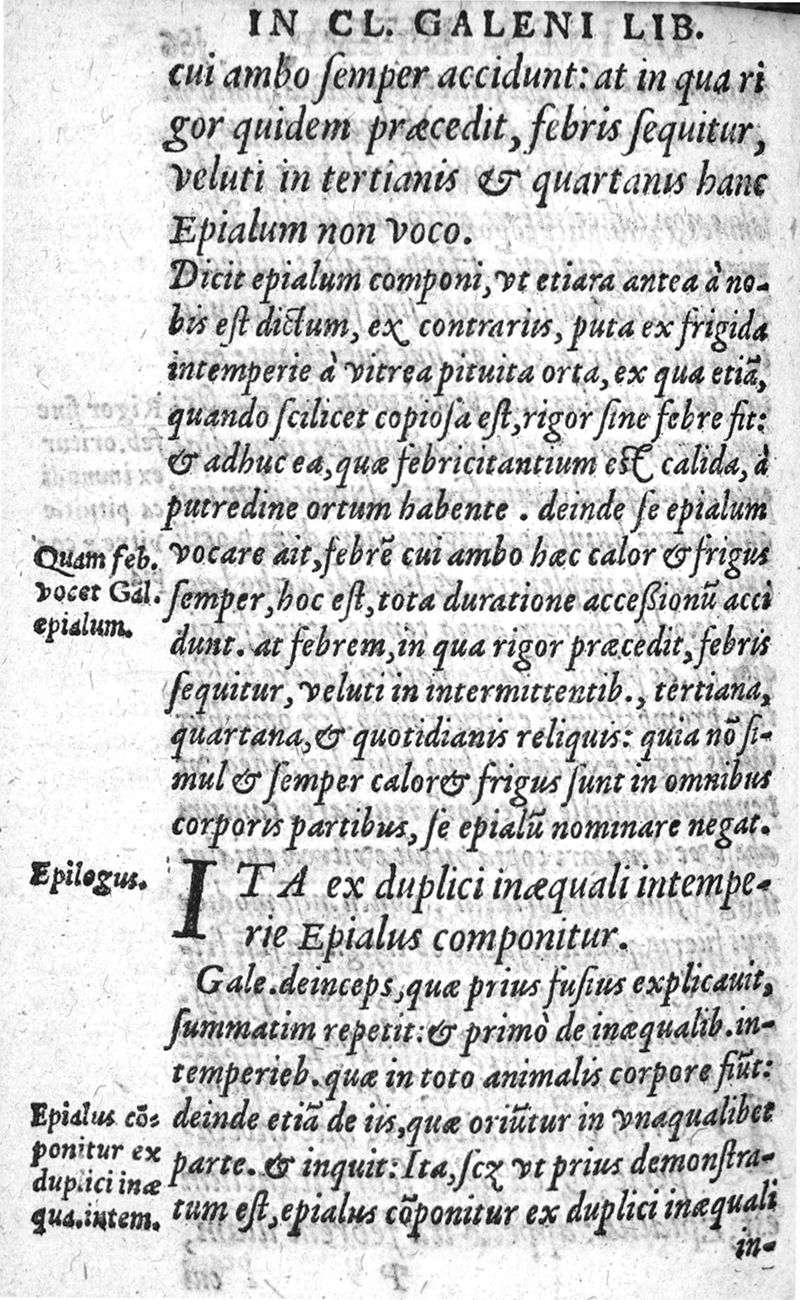 IN CL. GALENI LIB.
cui ambo ſemper accidunt: at in qua ri
gor quidem præcedit, febris ſequitur,
veluti in tertianis & quartanis hanc
Epialum non voco.
Dicit epialum componi, vt etiara antea à no-
bis eſt dictum, ex contrariis, puta ex frigida
intemperie à vitrea pituita orta, ex qua etiā,
quando ſcilicet copioſa eſt, rigor ſine febre fit:
& adhuc ea, quæ febricitantium eſt calida, à
putredine ortum habente . deinde ſe epialum
Quam feb.
vocet Gal.
epialum.
vocare ait, febrē cui ambo hæc calor & frigus
ſemper, hoc eſt, tota duratione acceßionū acci
dunt. at febrem, in qua rigor præcedit, febris
ſequitur, veluti in intermittentib., tertiana,
quartana, & quotidianis reliquis: quia nō ſi-
mul & ſemper calor & frigus ſunt in omnibus
corporis partibus, ſe epialū nominare negat.
Epilogus.
ITA ex duplici inæquali intempe-
rie Epialus componitur.
Gale. deinceps, quæ prius fuſius explicauit,
ſummatim repetit: & primò de inæqualib. in-
temperieb. quæ in toto animalis corpore fiūt:
Epialus cō-
ponitur ex
duplici inæ
qua. intem.
deinde etiā de iis, quæ oriūtur in vnaqualibet
parte. & inquit: Ita, ſcꝫ vt prius demonſtra-
tum eſt, epialus cōponitur ex duplici inæquali
in-